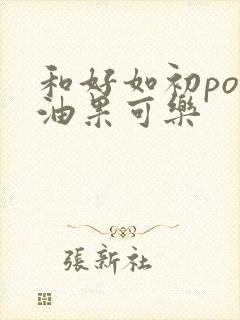 和好如初po
油果可樂
張新社